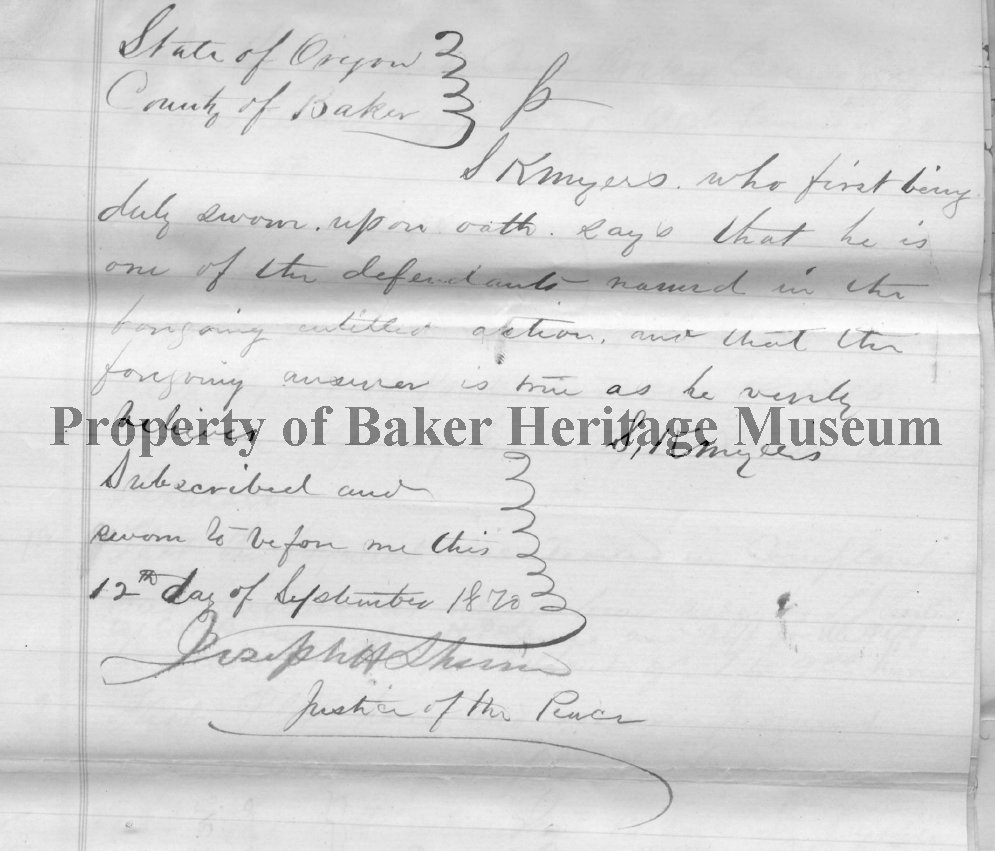 State of Oregon
County of Baker
ss
S K Myers. who first being
duly sworn. upon oath. says that he is
one of the defendants named in the
foregoing entitled action, and that the
foregoing answer is true as he verily
believes
S, K Myers
Property of Baker Heritage Museum
Subscribed and
sworn to before me this
12th day of September 1870
Joseph H
Justice of the Peace